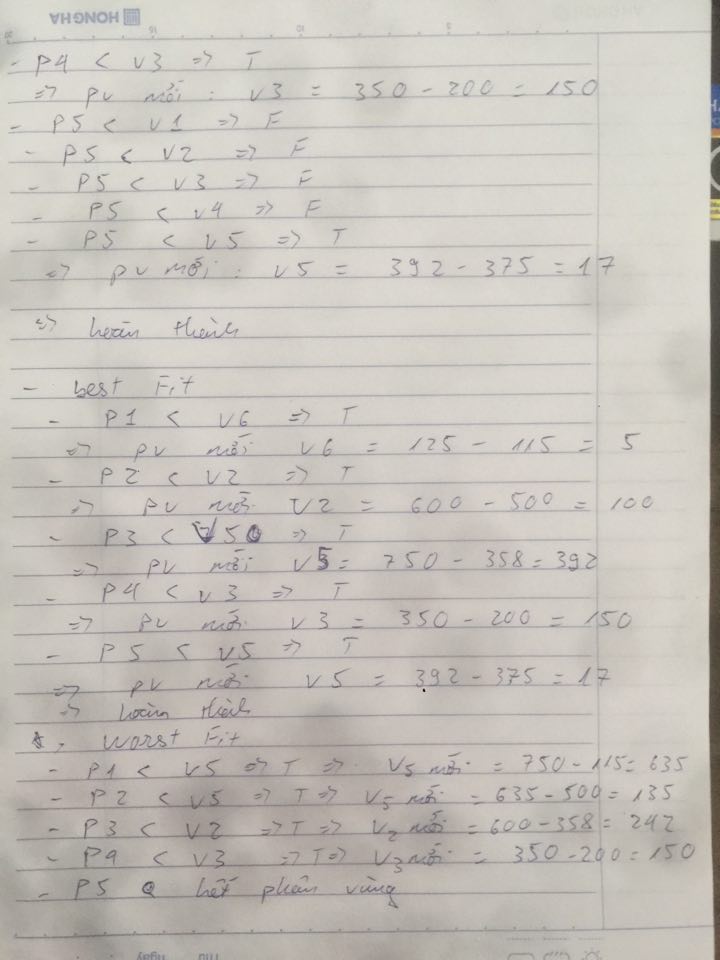 HONG HA
- P4 < V3 => T
=> pv mới : V3 = 350 - 200 = 150
- P5 < V1 => F
- P5 < V2 => F
- P5 < V3 => F
- P5 < V4 => F
- P5 < V5 => T
=> pv mới : V5 = 392 - 375 = 17
=> hoàn thành
- best Fit
- P1 < V6 => T
=> pv mới V6 = 125 - 115 = 5
- P2 < V2 => T
=> pv mới V2 = 600 - 500 = 100
- P3 < V5 => T
=> pv mới V5 = 750 - 358 = 392
- P4 < V3 => T
=> pv mới V3 = 350 - 200 = 150
- P5 < V5 => T
=> pv mới V5 = 392 - 375 = 17
=> hoàn thành
Worst Fit
- P1 < V5 => T => V5 mới = 750 - 115 = 635
- P2 < V5 => T => V5 mới = 635 - 500 = 135
- P3 < V2 => T => V2 mới = 600 - 358 = 242
- P4 < V3 => T => V3 mới = 350 - 200 = 150
- P5 hết phân vùng